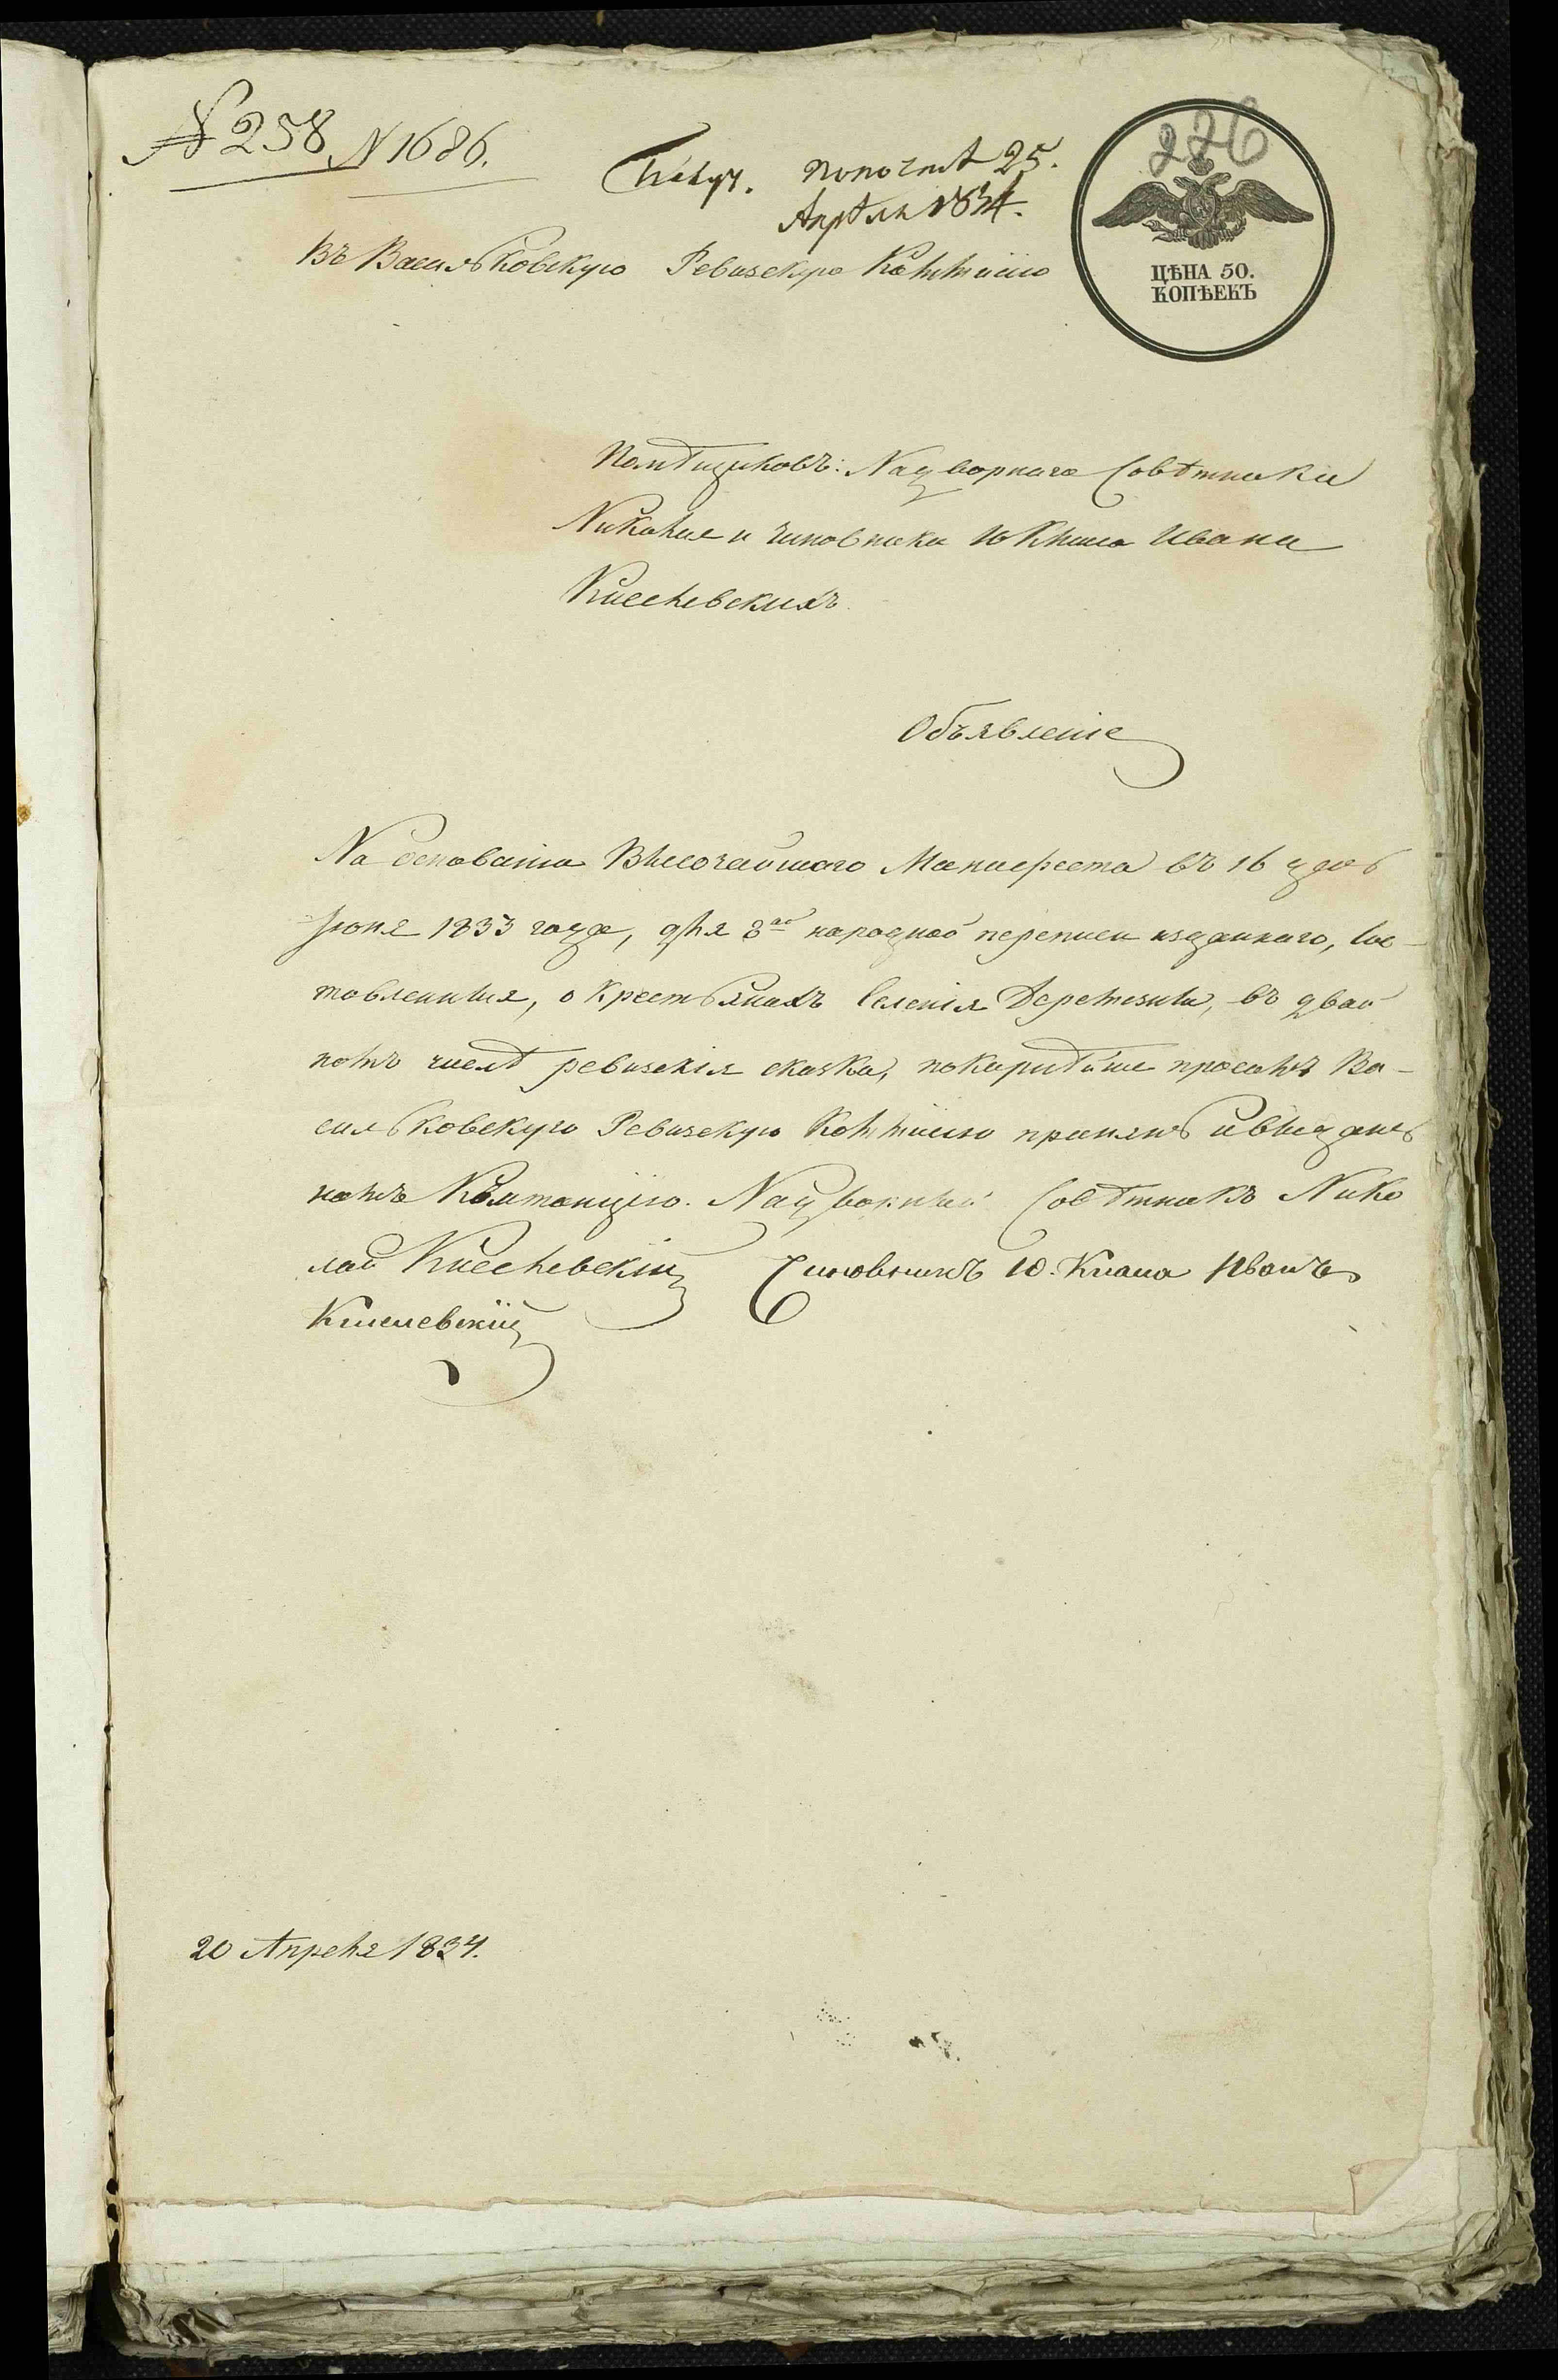 № 258 N 1686.
226
Получ. 25.
Апрѣля 1834.
Въ Васильковскую Ревизскую Коммисію
ЦѢНА 50.
КОПѢЕКЪ
Помѣщиковъ: Надворнаго Совѣтника
Николая и чиновника 10 Класа Ивана
Киселевскихъ
Объявленіе
На основаніи Высочайшаго Манифеста въ 16 день
Іюня 1833 года, для 8ой народной переписи изданнаго, сос-
тавленныя, о крестьянахъ селенія Деремезны, въ двой
номъ числѣ ревизскія сказки, покорнѣйше просимъ Ва-
сильковскую Ревизскую Коммисію принять и выдать
намъ Квитанцію. Надворный Совѣтникъ Нико
лай Киселевскій Чиновникъ 10. Класа Иванъ
Киселевскій
20 Апреля 1834.